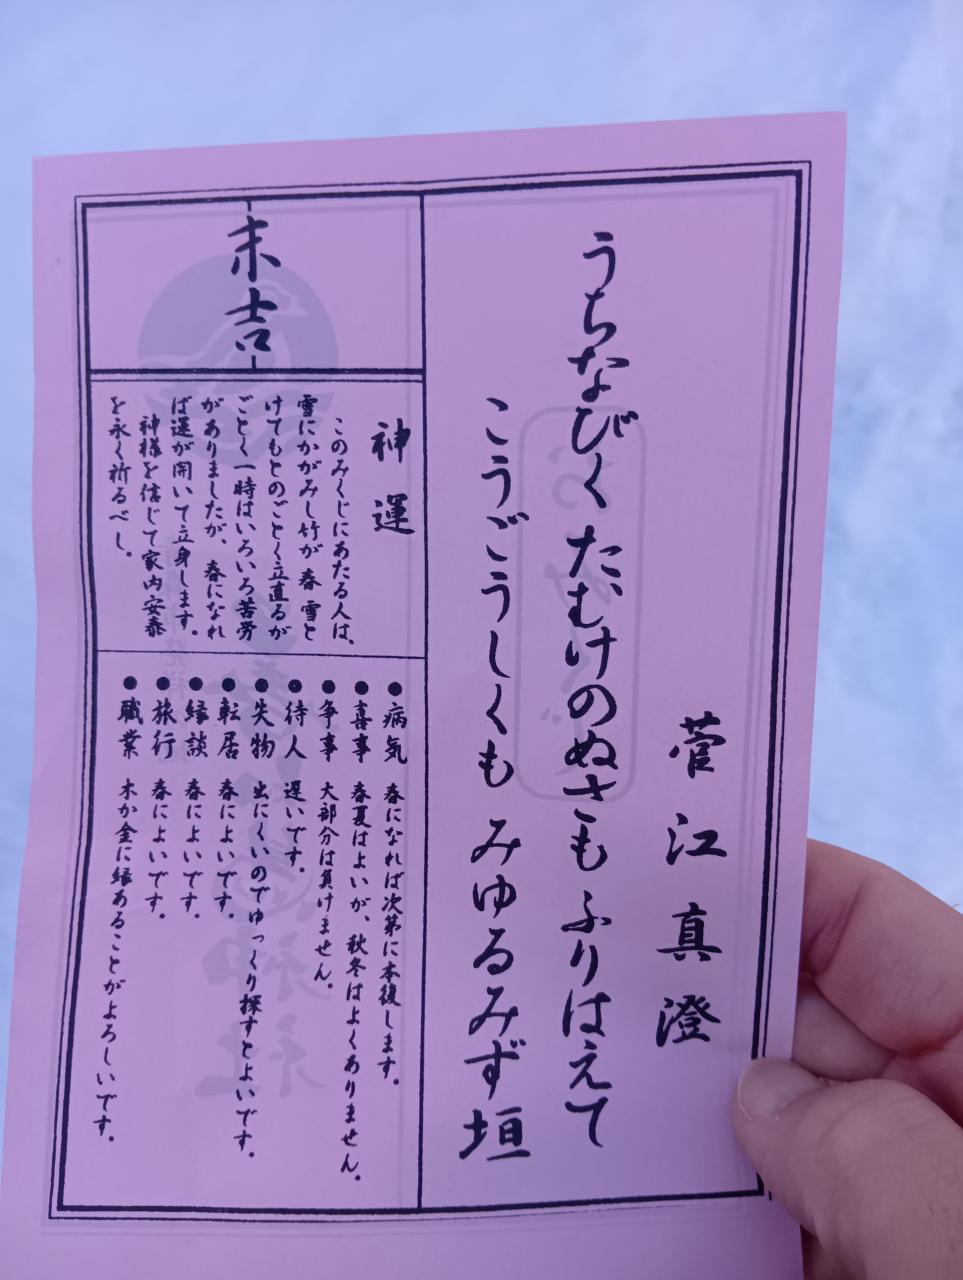 菅江真澄
うちなびく たむけのぬさも ふりはえて
こうごうしくも みゆるみず垣
末吉
神運
このみくじにあたる人は、
雪にかがみし竹が 春 雪と
けてもとのごとく立直るが
ごとく一時はいろいろ苦労
がありましたが、春になれ
ば運が開いて立身します。
神様を信じて家内安泰
を永く祈るべし。
●病気 春になれば次第に本復します。
●喜事 春夏はよいが、秋冬はよくありません。
●争事 大部分は負けません。
●待人 遅いです。
●失物 出にくいのでゆっくり探すとよいです。
●転居 春によいです。
●縁談 春によいです。
●旅行 春によいです。
●職業 木か金に縁あることがよろしいです。
おみくじ